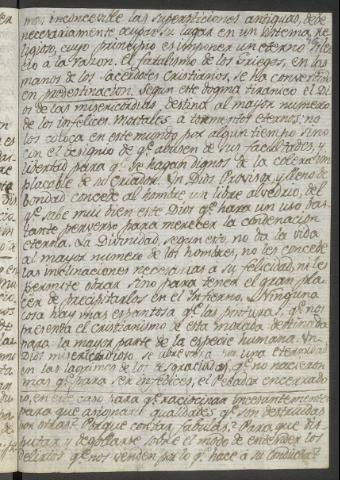 mos inconcevible las supersticiones antiguas, debe
necesariamente ocupar su lugar en un sistema Re-
ligioso, cuyo principio es imponer un eterno Silen-
cio á la razon. El fatalismo de los Griegos, en las
manos de los Sacerdotes Cristianos, se ha convertido
en predestinacion. Segun este dogma tiranico el Di-
os de las misericordias destina al mayor numero
de los infelices mortales á tormentos eternos; no
los coloca en este mundo por algun tiempo sino
con el designio de qe abusen de sus facultades, y
libertad para qe se hagan dignos de la colera im-
placable de su Criador. Un Dios Provisor, y lleno de
bondad concede al hombre un libre alvedrio, del
qe sabe mui bien este Dios qe hará un uso bas-
tante perverso para merecer la condenacion
eterna. La Divinidad segun esto, no da la vida
al mayor numero de los hombres, no les concede
las inclinaciones necesarias a su felicidad, ni les
permite obrar sino para tener el gran pla-
cer de precipitarlos en el Infierno. Ninguna
cosa hay mas espantosa qe las pinturas qe nos
presenta el cristianismo de esta morada destinada
para la mayor parte de la especie humana. Un
Dios misericordioso se abrevará por una eternidad
en las lagrimas de los desgraciados, qe no nacieron
mas qe para ser infelices, el Pecador encerrado
en este caso para qe raciocinar incesantemente
para que asignarle qualidades qe son destruidas
por otras? Porque contar fabulas? Para que dis-
putar, y degollarse sobre el modo de entender los
delirios qe nos venden por lo qe hace á su conducta?